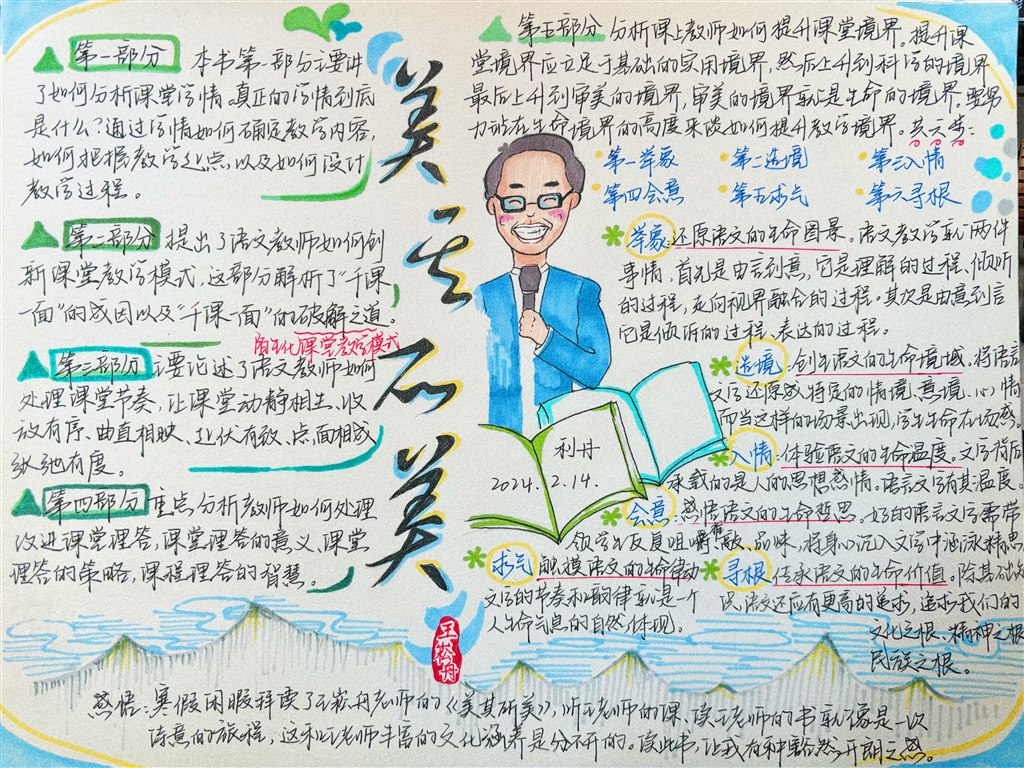 第一部分 本书第一部分主要讲
了如何分析课堂学情。真正的学情到底
是什么？通过学情如何确定教学内容，
如何把握教学起点，以及如何设计
教学过程。
第二部分 提出了语文教师如何创
新课堂教学模式，这部分解析了“千课
一面”的成因以及“千课一面”的破解之道。
课堂教学模式
第三部分 主要论述了语文教师如何
处理课堂节奏，让课堂动静相生、收
放有序、曲直相映、起伏有致、点面相成
纵弛有度。
第四部分 重点分析教师如何处理
改进课堂理答，课堂理答的意义、课堂
理答的策略，课程理答的智慧。
美其所美
王崧舟
利丹
2024.2.14.
第五部分 分析课上教师如何提升课堂境界。提升课
堂境界应立足于基础的实用境界，然后上升到科学的境界
最后上升到审美的境界，审美的境界就是生命的境界。要努
力站在生命境界的高度来谈如何提升教学境界。共六步：
第一举象 第二造境 第三入情
第四会意 第五求气 第六寻根
举象：还原语文的生命图景。语文教学就两件
事情，首先是由言到意，它是理解的过程、倾听
的过程，走向视界融合的过程。其次是由意到言
它是倾诉的过程、表达的过程。
造境：创生语文的生命境域。将语言
文字还原成特定的情境、意境、心情
而当这样的场景出现，学生生命在场感。
入情：体验语文的生命温度。文字背后
承载的是人的思想感情。语言文字有其温度。
会意：感悟语文的生命哲思。好的语言文字需带
领学生反复咀嚼、品味，将身心沉入文字中涵泳精思
求气 触摸语文的生命律动
文字的节奏和韵律就是一个
人生命气息的自然体现。
寻根 传承语文的生命价值。除基础知
识，语文还应有更高的追求，追求我们的
文化之根、精神之根
民族之根。
感悟：寒假闲暇拜读了王崧舟老师的《美其所美》，听王老师的课、读王老师的书就像是一次
诗意的旅程，这和王老师丰富的文化涵养是分不开的。读此书，让我有种豁然开朗之感。